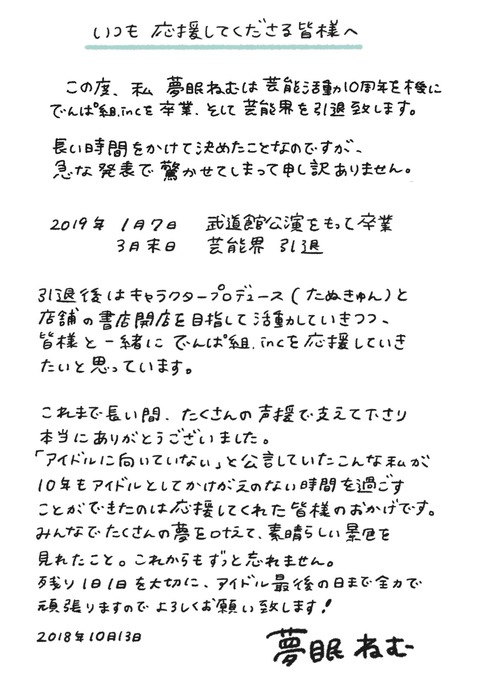 いつも 応援してくださる皆様へ
この度、私 夢眠ねむは芸能活動10周年を機に
でんぱ組.incを卒業、そして芸能界を引退致します。
長い時間をかけて決めたことなのですが、
急な発表で驚かせてしまって申し訳ありません。
2019年 1月7日 武道館公演をもって卒業
3月末日 芸能界 引退
引退後はキャラクタープロデュース(たぬきゅん)と
店舗の書店開店を目指して活動していきつつ、
皆様と一緒に でんぱ組.incを応援していき
たいと思っています。
これまで長い間、たくさんの声援で支えて下さり
本当にありがとうございました。
「アイドルに向いていない」と公言していたこんな私が
10年もアイドルとしてかけがえのない時間を過ごす
ことができたのは応援してくれた皆様のおかげです。
みんなでたくさんの夢を叶えて、素晴らしい景色を
見れたこと。これからもずっと忘れません。
残り1日1日を大切に、アイドル最後の日まで全力で
頑張りますのでよろしくお願い致します!
2018年10月13日
夢眠 ねむ